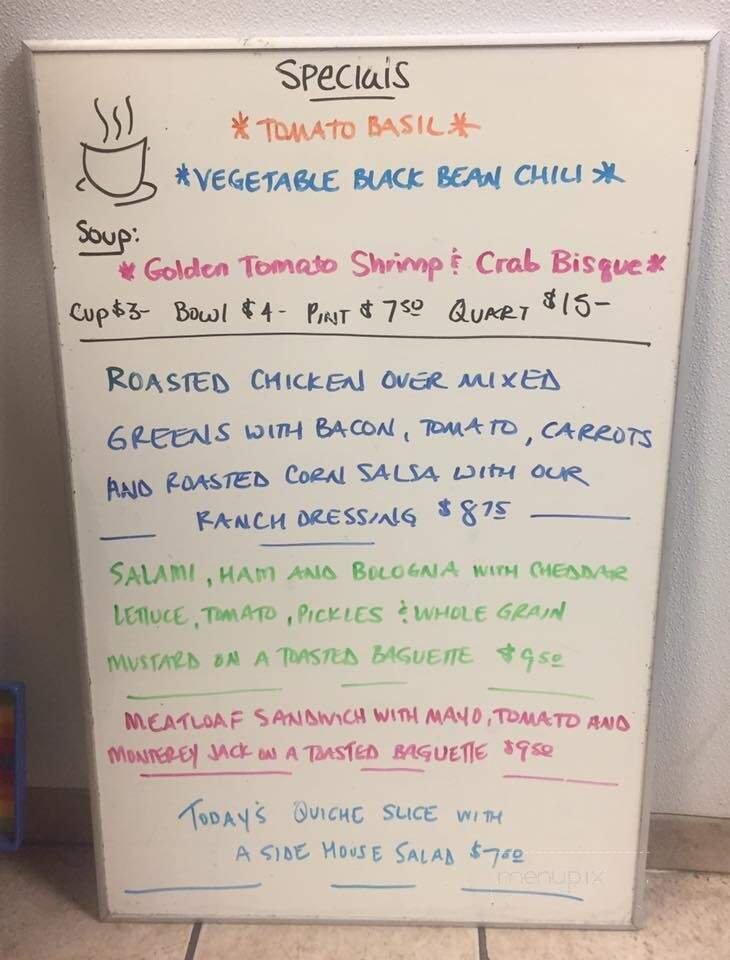 Specials
*TOMATO BASIL*
*VEGETABLE BLACK BEAN CHILI*
Soup:
*Golden Tomato Shrimp & Crab Bisque*
Cup $3- Bowl $4- PINT $7.50 QUART $15-
ROASTED CHICKEN OVER MIXED
GREENS WITH BACON, TOMATO, CARROTS
AND ROASTED CORN SALSA WITH OUR
RANCH DRESSING $8.75
SALAMI, HAM AND BOLOGNA WITH CHEDDAR
LETTUCE, TOMATO, PICKLES & WHOLE GRAIN
MUSTARD ON A TOASTED BAGUETTE $9.50
MEATLOAF SANDWICH WITH MAYO, TOMATO AND
MONTEREY JACK ON A TOASTED BAGUETTE $9.50
TODAY'S QUICHE SLICE WITH
A SIDE HOUSE SALAD $7.00
menupix